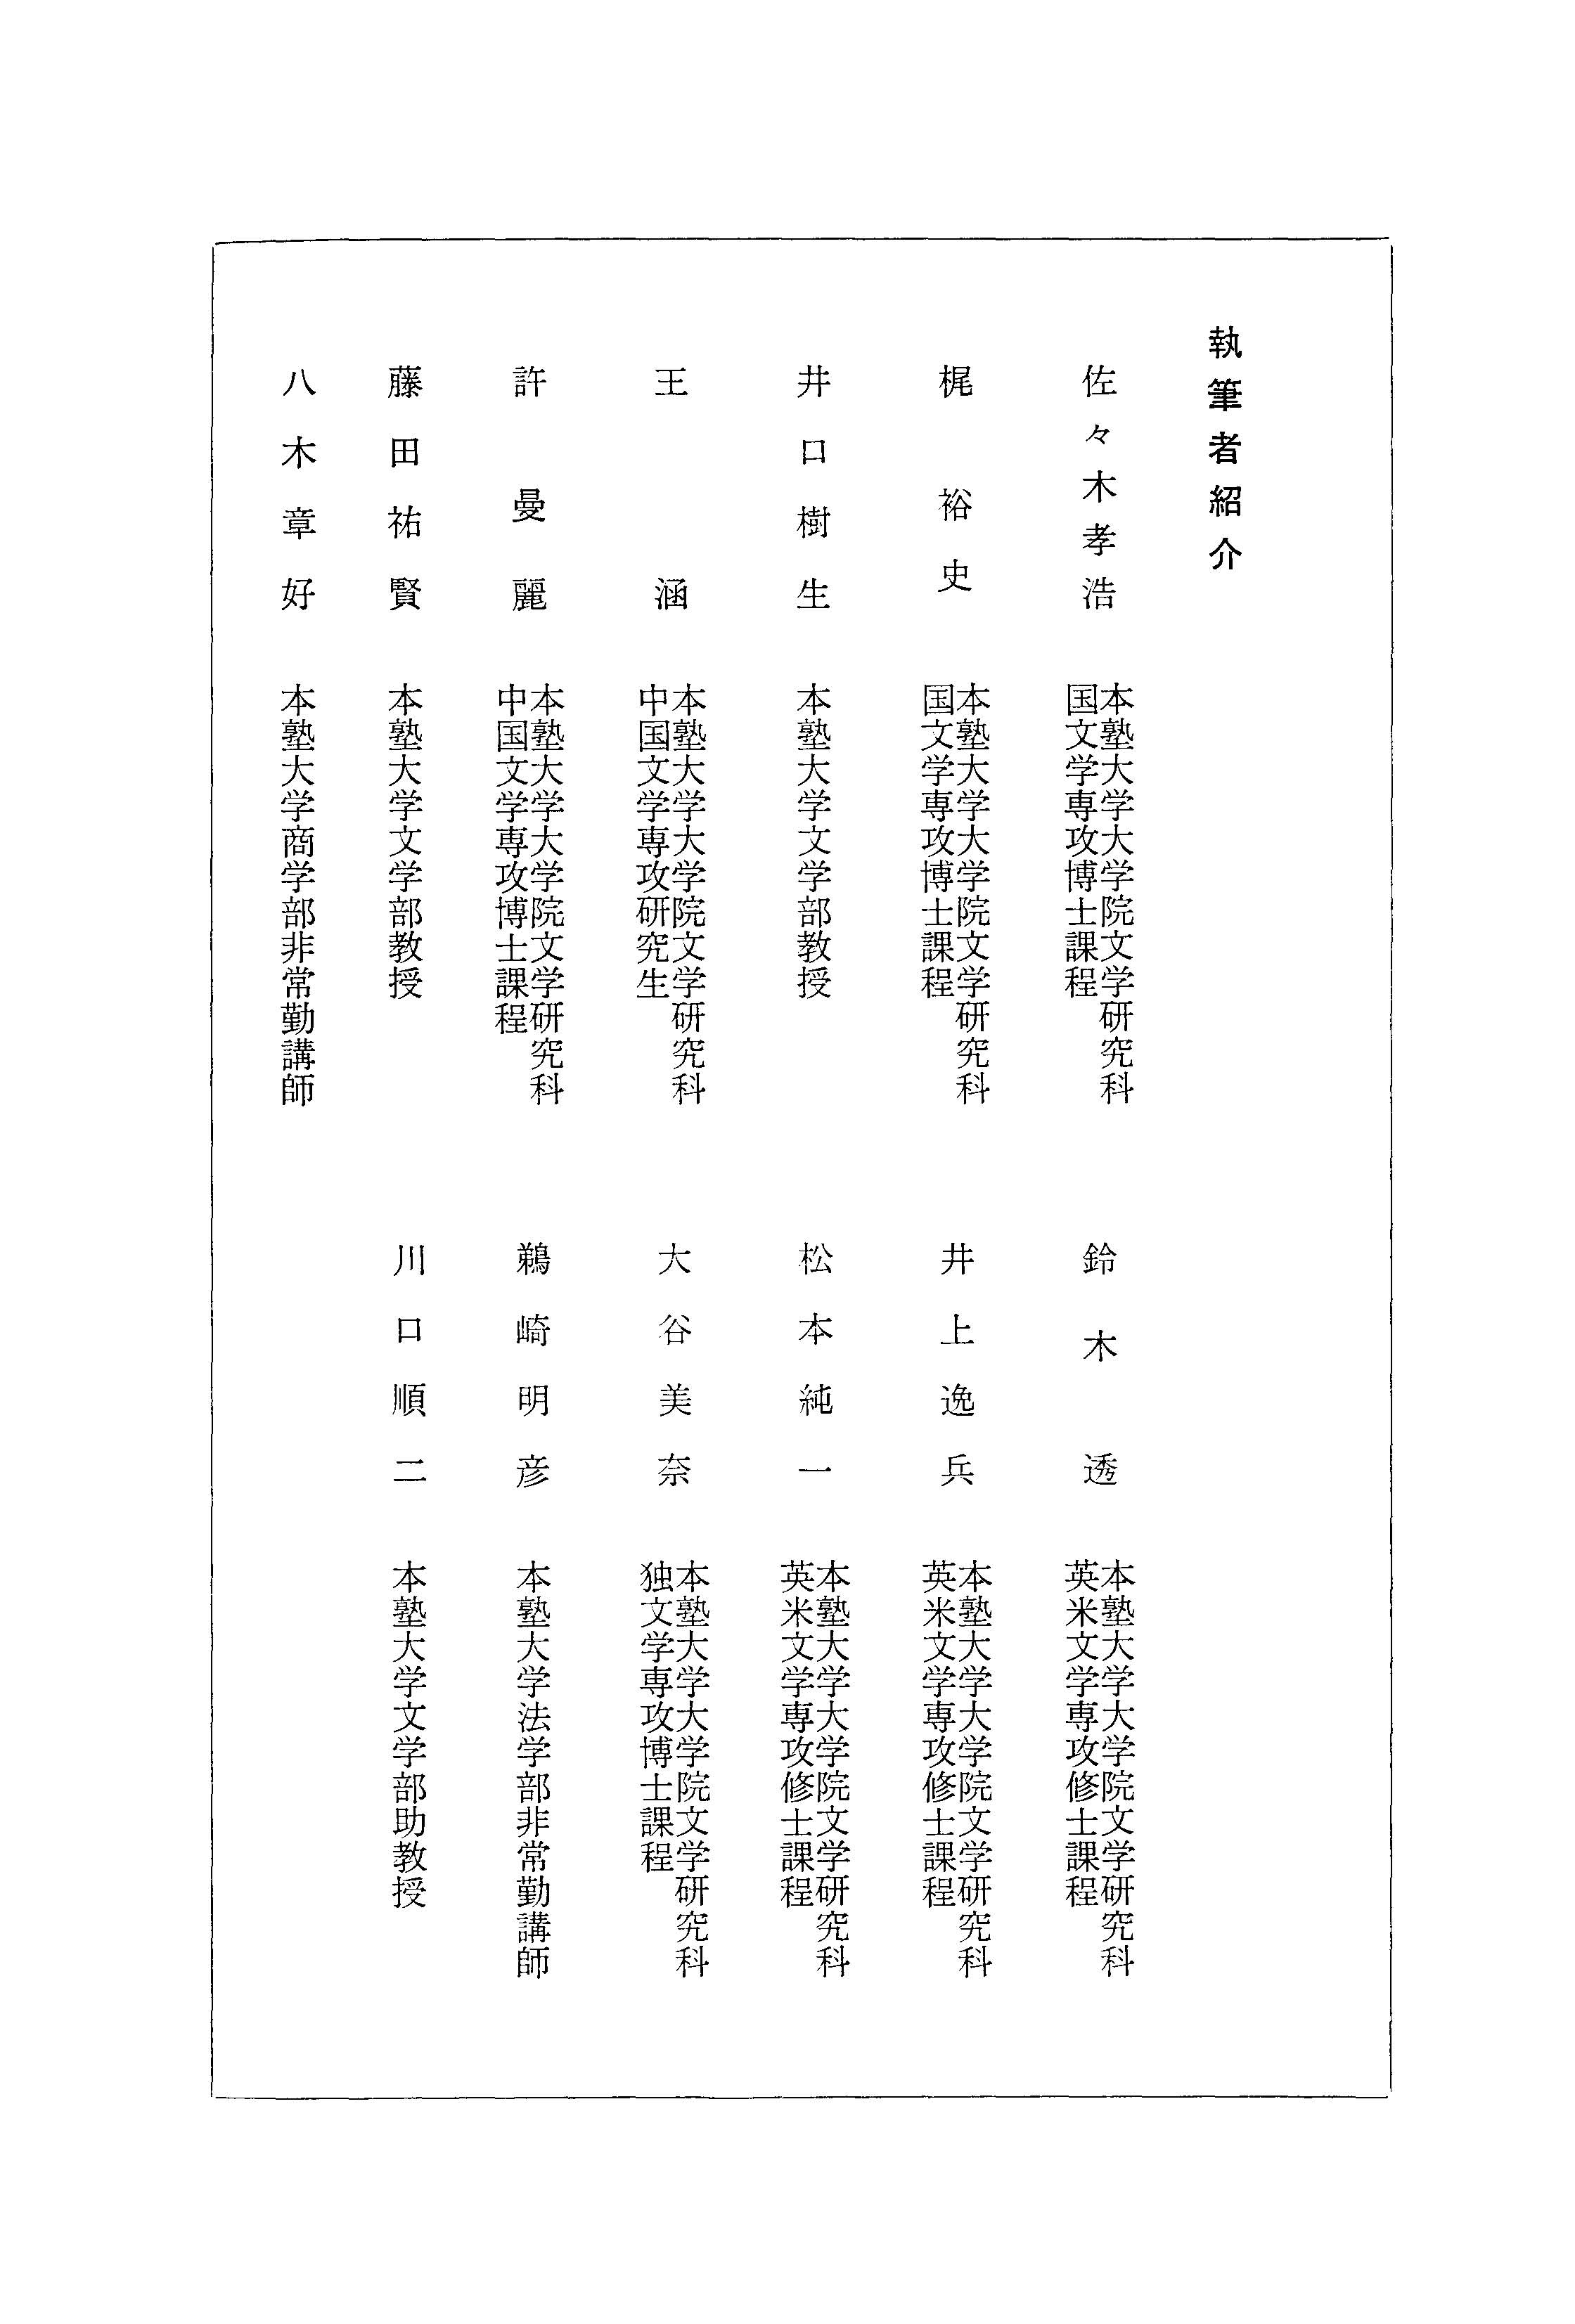 執筆者紹介
佐々木孝浩
本塾大学大学院文学研究科
国文学専攻博士課程
梶 裕史
本塾大学大学院文学研究科
国文学専攻博士課程
井口樹生
本塾大学文学部教授
王 涵
本塾大学大学院文学研究科
中国文学専攻研究生
許 曼麗
本塾大学大学院文学研究科
中国文学専攻博士課程
藤田祐賢
本塾大学文学部教授
八木章好
本塾大学商学部非常勤講師
鈴木 透
本塾大学大学院文学研究科
英米文学専攻修士課程
井上逸兵
本塾大学大学院文学研究科
英米文学専攻修士課程
松本純一
本塾大学大学院文学研究科
英米文学専攻修士課程
大谷美奈
本塾大学大学院文学研究科
独文学専攻博士課程
鵜崎明彦
本塾大学法学部非常勤講師
川口順二
本塾大学文学部助教授